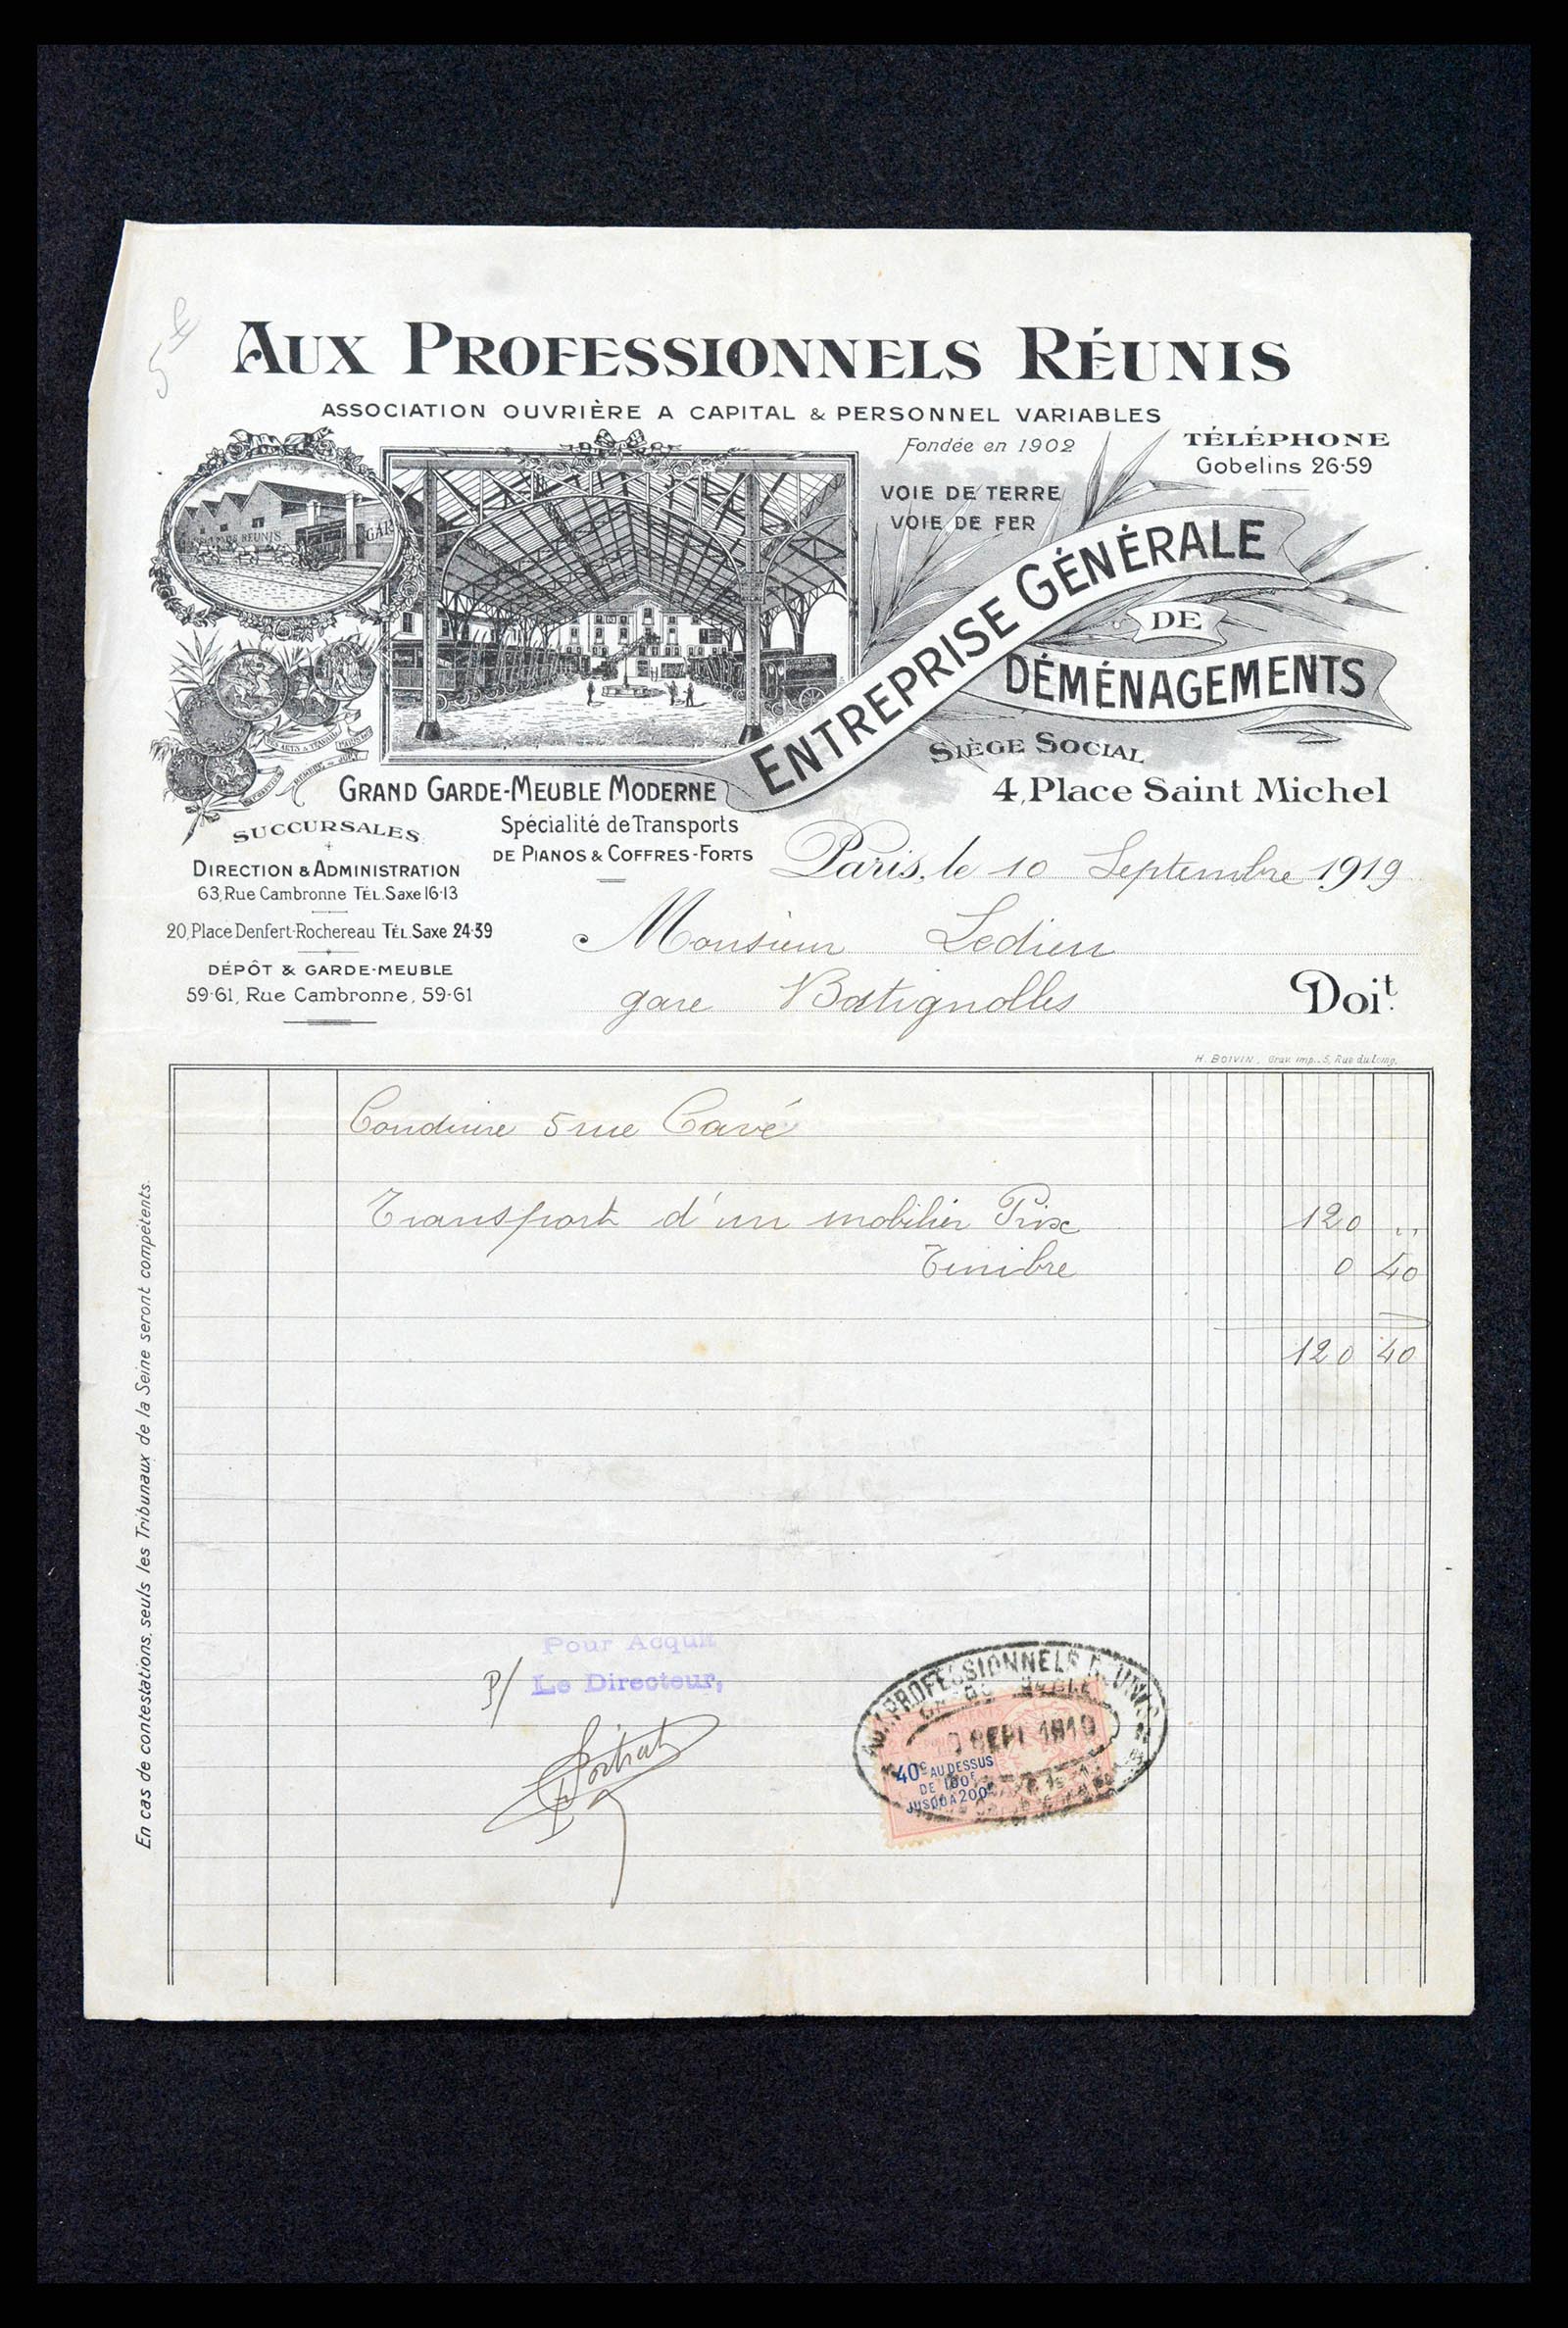 5 f
AUX PROFESSIONNELS RÉUNIS
ASSOCIATION OUVRIÈRE A CAPITAL & PERSONNEL VARIABLES
Fondée en 1902
TÉLÉPHONE
Gobelins 26-59
VOIE DE TERRE
VOIE DE FER
RÉUNIS
GAR
ENTREPRISE GÉNÉRALE
DE
DÉMÉNAGEMENTS
SIÈGE SOCIAL
4, Place Saint Michel
GRAND GARDE-MEUBLE MODERNE
Spécialité de Transports
DE PIANOS & COFFRES-FORTS
SUCCURSALES
DIRECTION & ADMINISTRATION
63, Rue Cambronne TÉL. Saxe 16-13
20, Place Denfert-Rochereau TÉL. Saxe 24-39
DÉPÔT & GARDE-MEUBLE
59-61, Rue Cambronne, 59-61
Paris, le 10 Septembre 1919
Monsieur Ledieu
gare Batignolles
Doit.
H. BOIVIN, Grav. imp., 5, Rue du Long.
Conduire 5 rue Cavé
Transport d'un mobilier Prix 120 "
Timbre 0 40
120 40
En cas de contestations, seuls les Tribunaux de la Seine seront compétents.
Pour Acquit
P/ Le Directeur,
AUX PROFESSIONNELS RÉUNIS
SEPT 1919
40c AU DESSUS
DE 100F
JUSQU'A 200F